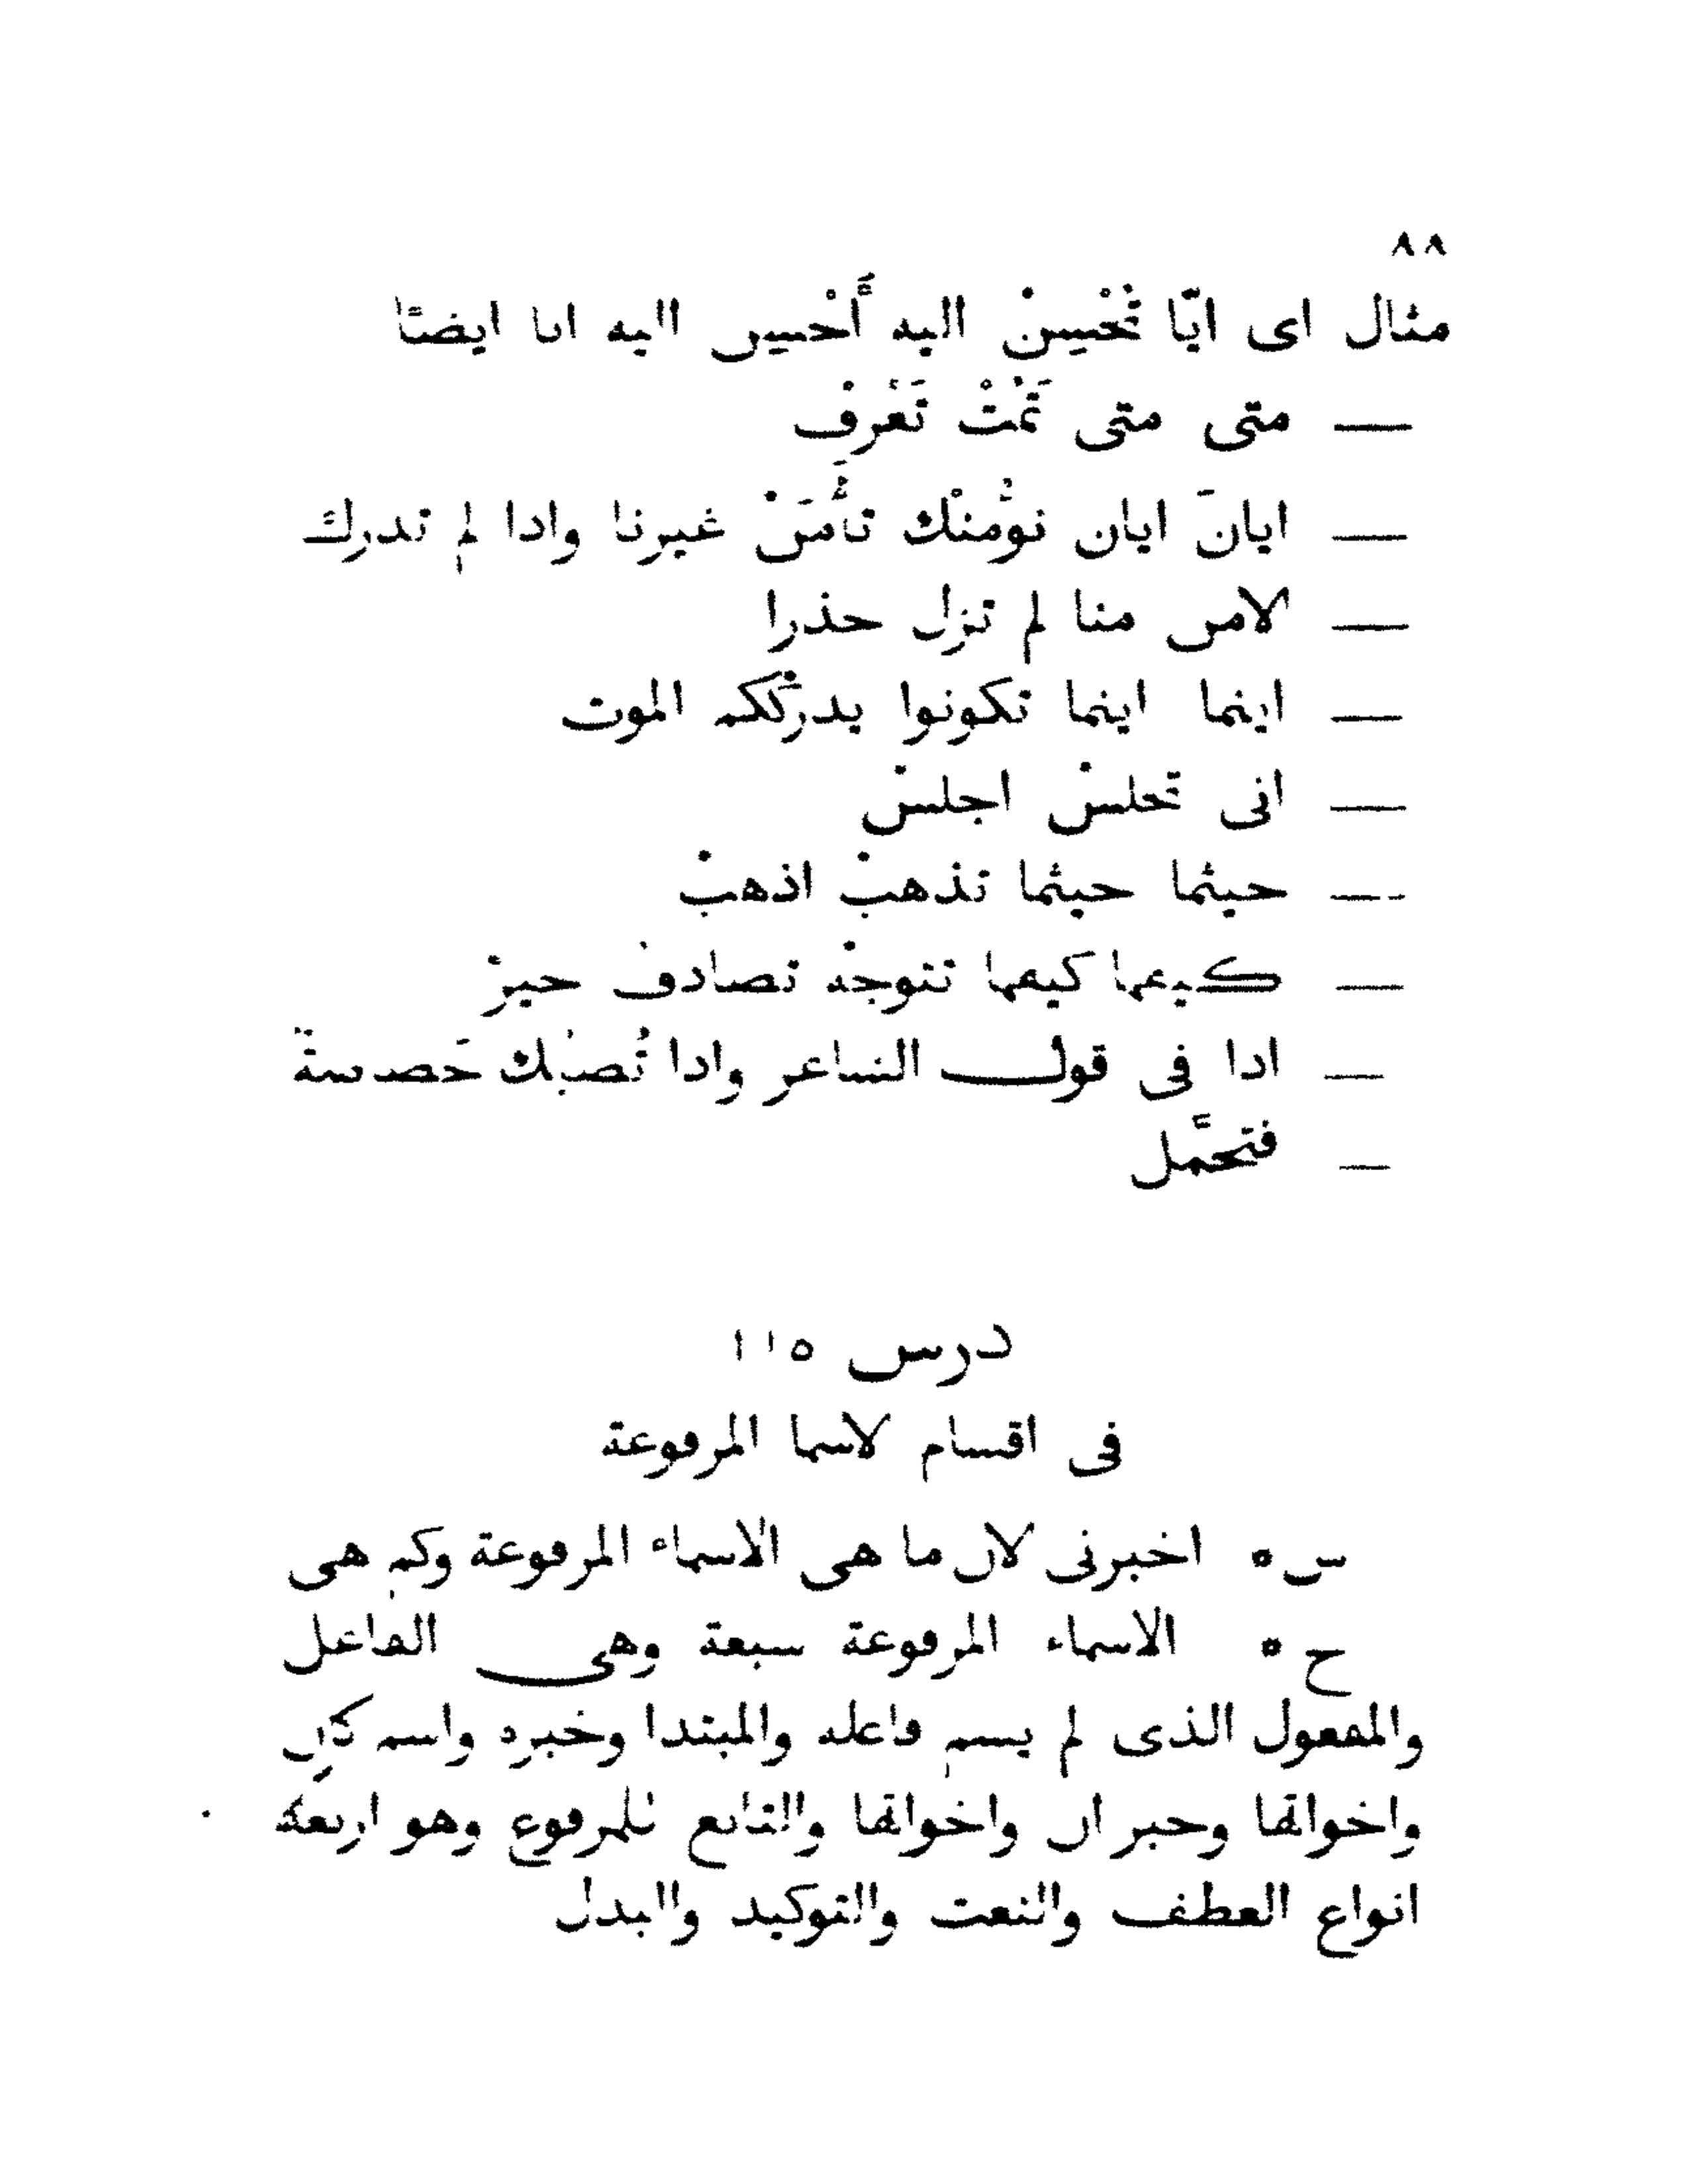 ٨٨
مثال اى ايّا تُحْسِنْ اليه أُحْسِن اليه انا ايضًا
— متى متى تَمُتْ تَعْرِفْ
— ايانَ ايان نوُّمنْك تأْمَنْ غيرنا واذا لم تدرك
— لامن منا لم تزل حذرا
— اينما اينما تكونوا يدرِكْكم الموت
— انى تجلسْ اجلسْ
— حيثما حيثما تذهبْ اذهبْ
— كيفما كيفما تتوجهْ تصادفْ خيرْ
— اذا فى قول الشاعر واذا تُصبْك خَصاصةٌ
— فتحمَّل
درس ١١٥
فى اقسام لاسما المرفوعة
س٥ اخبرنى لان ما هى الاسماء المرفوعة وكم هى
ج٥ الاسماء المرفوعة سبعة وهى الفاعل
والمفعول الذى لم يسم فاعله والمبتدا وخبره واسم كان
واخواتها وخبر ان واخواتها والتابع للمرفوع وهو اربعة
انواع العطف والنعت والتوكيد والبدل